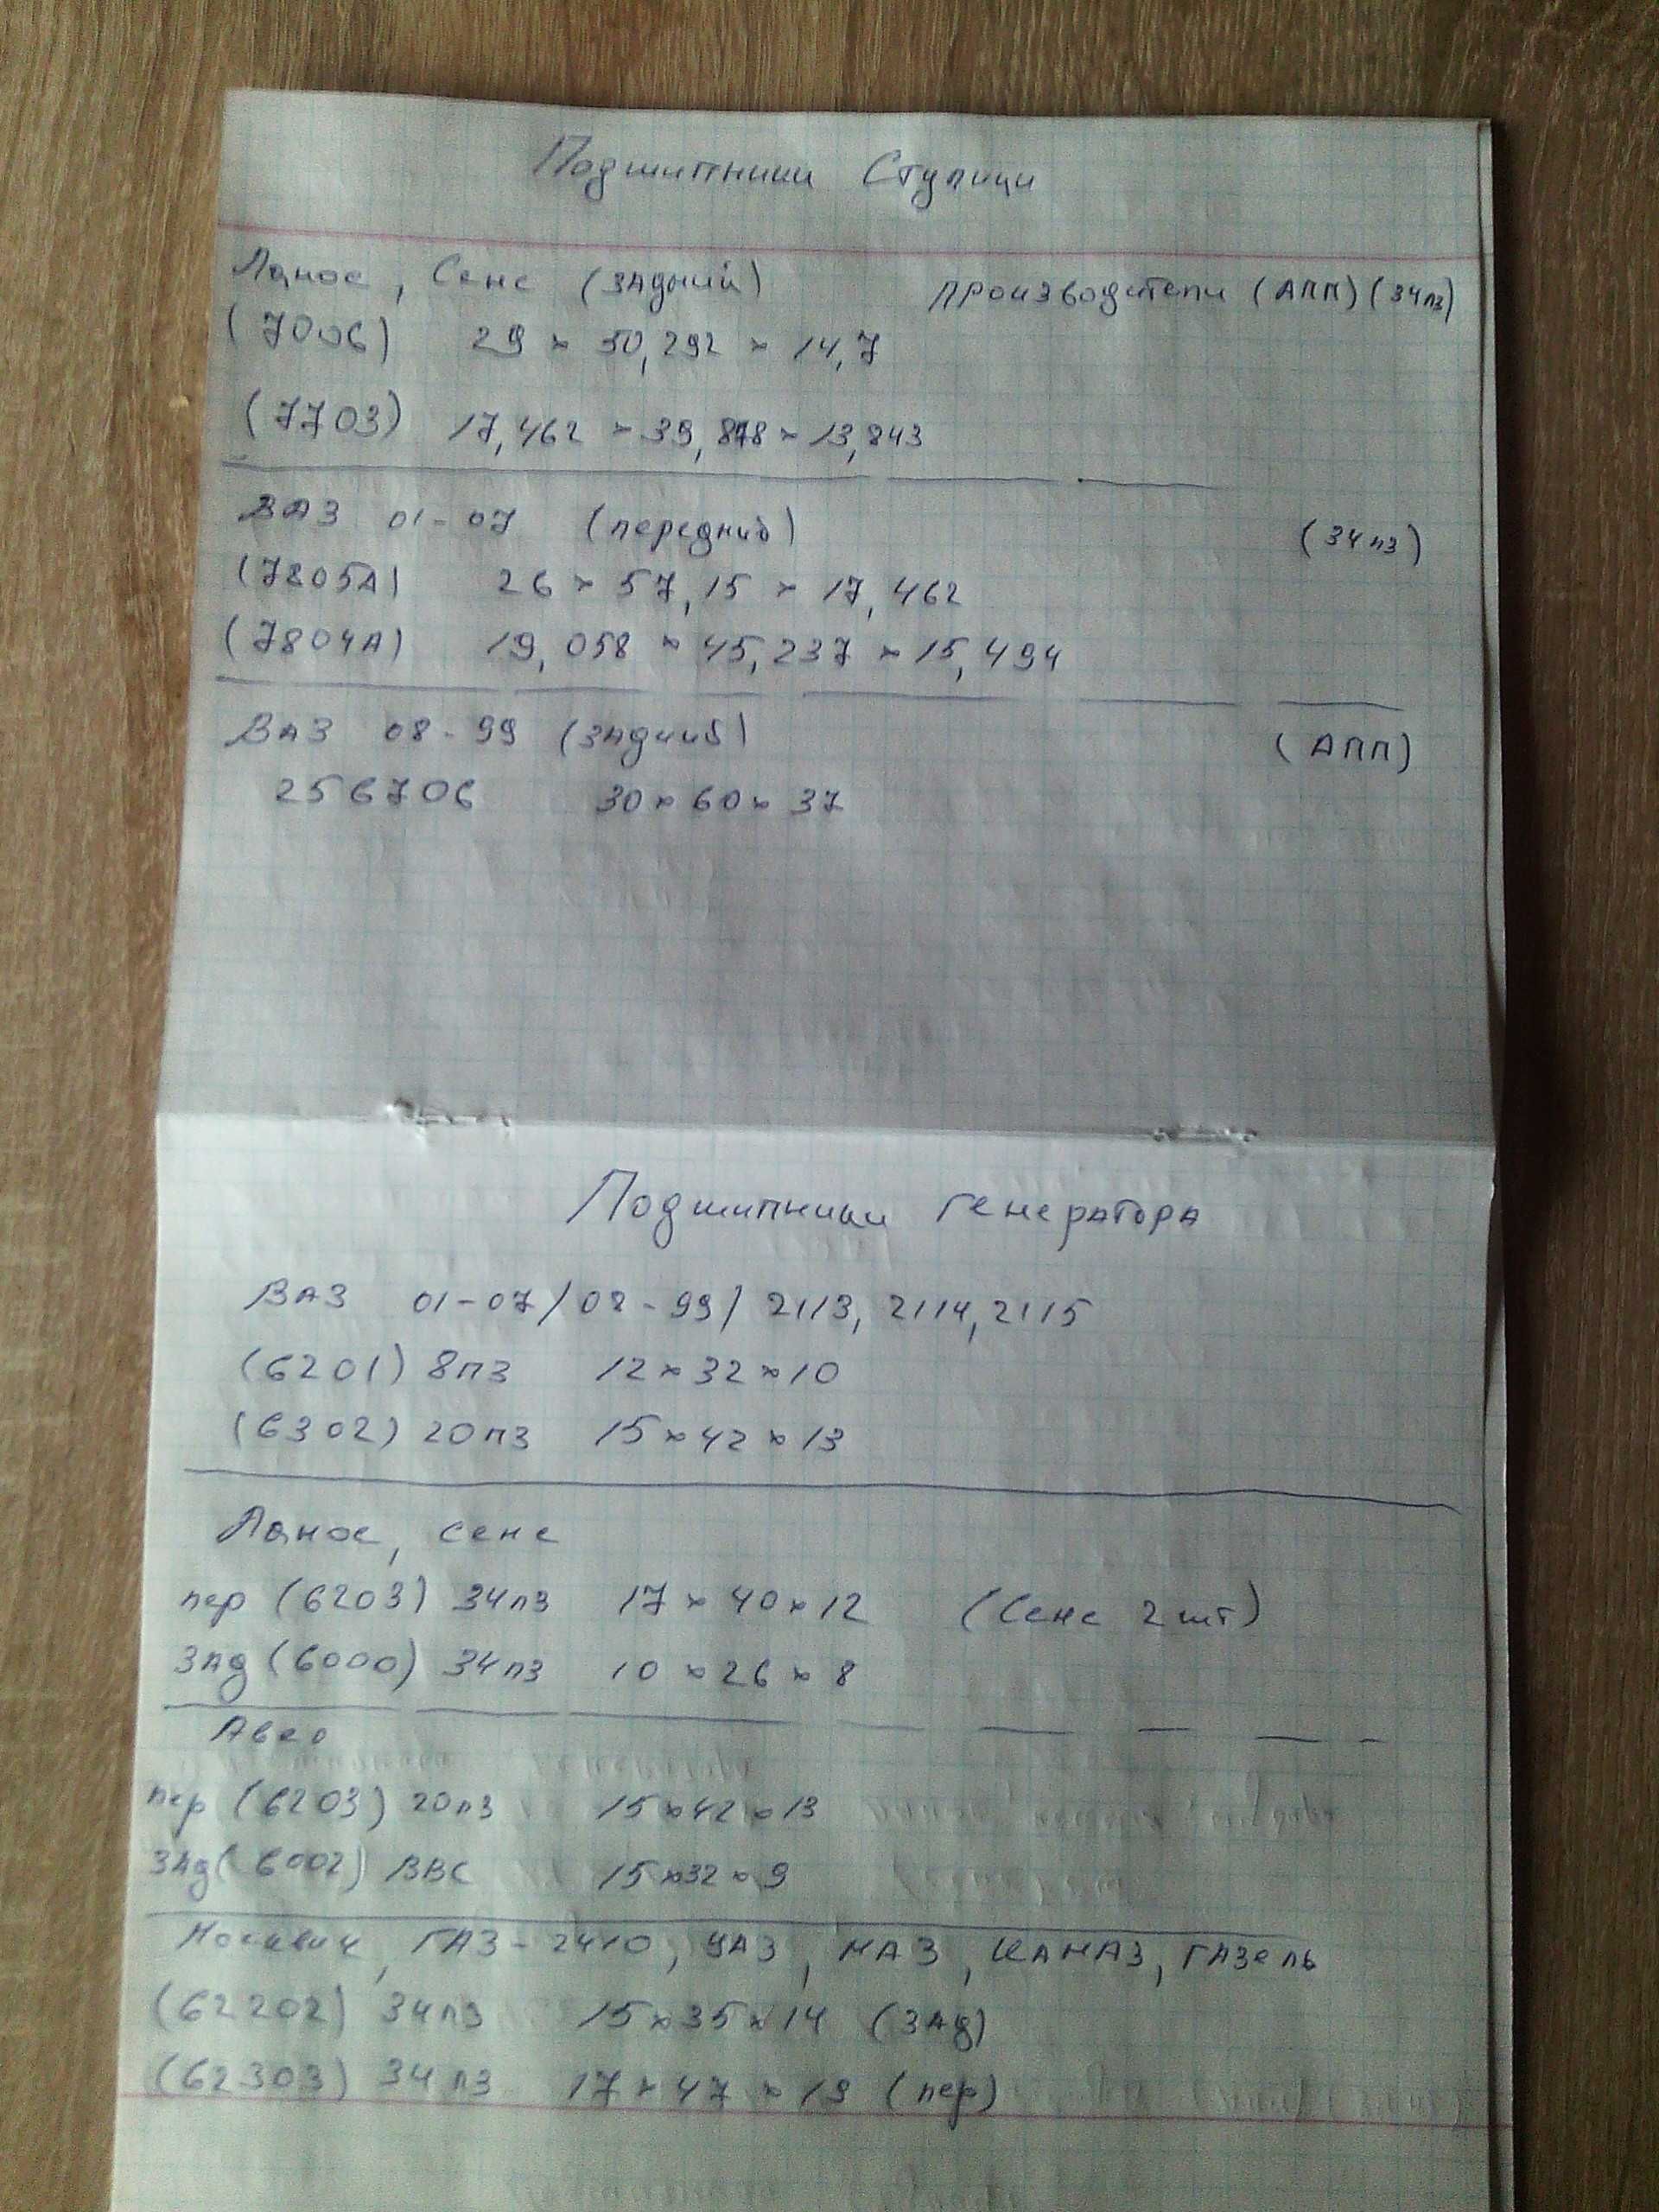 Подшипники Ступици
Ланос, Сенс (задний) производители (АПП) (34пз)
(7006) 29 × 50,292 × 14,7
(7703) 17,462 × 39,878 × 13,843
ВАЗ 01-07 (передний) (34пз)
(7805А) 26 × 57,15 × 17,462
(7804А) 19,058 × 45,237 × 15,494
ВАЗ 08-99 (задний) (АПП)
256706 30 × 60 × 37
Подшипники генератора
ВАЗ 01-07/08-99/ 2113, 2114, 2115
(6201) 8пз 12 × 32 × 10
(6302) 20пз 15 × 42 × 13
Ланос, сенс
пер (6203) 34пз 17 × 40 × 12 (Сенс 2шт)
зад (6000) 34пз 10 × 26 × 8
Авео
пер (6203) 20пз 15 × 42 × 13
зад (6002) ВВС 15 × 32 × 9
Москвич, ГАЗ-2410, УАЗ, МАЗ, КАМАЗ, ГАЗель
(62202) 34пз 15 × 35 × 14 (зад)
(62303) 34пз 17 × 47 × 19 (пер)